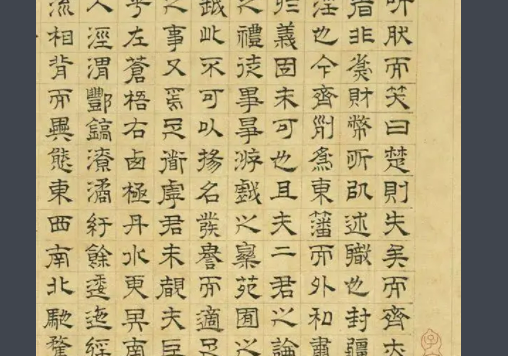 听肰而笑曰楚則失矣而齊亦
者非爲財幣所以述職也封疆
淫也今齊列爲東藩而外私肅
於義固未可也且夫二君之論
之禮徒事爭游戲之樂苑囿之
越此不可以揚名發譽而適足
之事又焉足道虖君未覩夫巨
乎左蒼梧右西極丹水更其南
入涇渭酆鎬潦潏紆餘逶迤經
流相背而異態東西南北馳騖